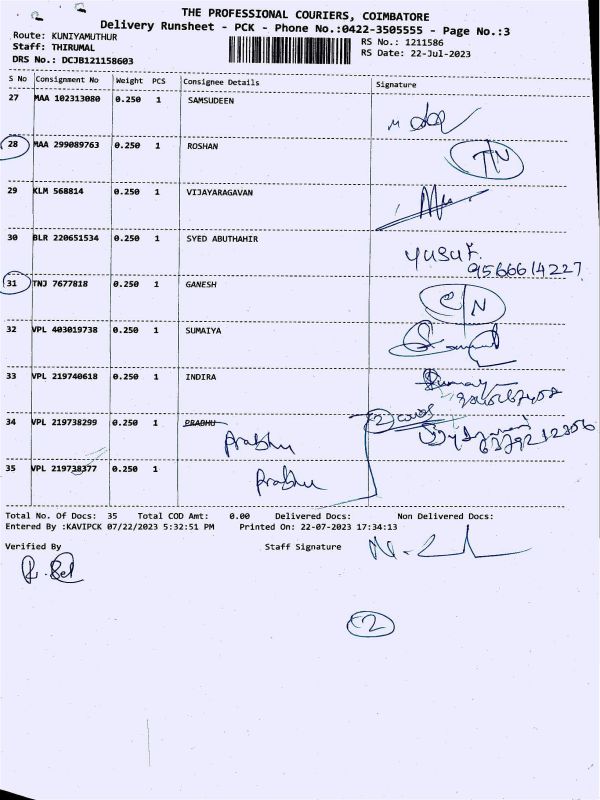 THE PROFESSIONAL COURIERS, COIMBATORE
Delivery Runsheet - PCK - Phone No.:0422-3505555 - Page No.:3
Route: KUNIYAMUTHUR
Staff: THIRUMAL
DRS No.: DCJB121158603
RS No.: 1211586
RS Date: 22-Jul-2023
S No Consignment No Weight PCS Consignee Details Signature
27 MAA 102313080 0.250 1 SAMSUDEEN
28 MAA 299089763 0.250 1 ROSHAN
29 KLM 568814 0.250 1 VIJAYARAGAVAN
30 BLR 220651534 0.250 1 SYED ABUTHAHIR
yusuf.
9566614227
31 TNJ 7677818 0.250 1 GANESH
32 VPL 403019738 0.250 1 SUMAIYA
33 VPL 219740618 0.250 1 INDIRA
34 VPL 219738299 0.250 1 PRABHU
Prabhu
2
35 VPL 219738377 0.250 1
Prabhu
Total No. Of Docs: 35 Total COD Amt: 0.00 Delivered Docs: Non Delivered Docs:
Entered By :KAVIPCK 07/22/2023 5:32:51 PM Printed On: 22-07-2023 17:34:13
Verified By Staff Signature
2